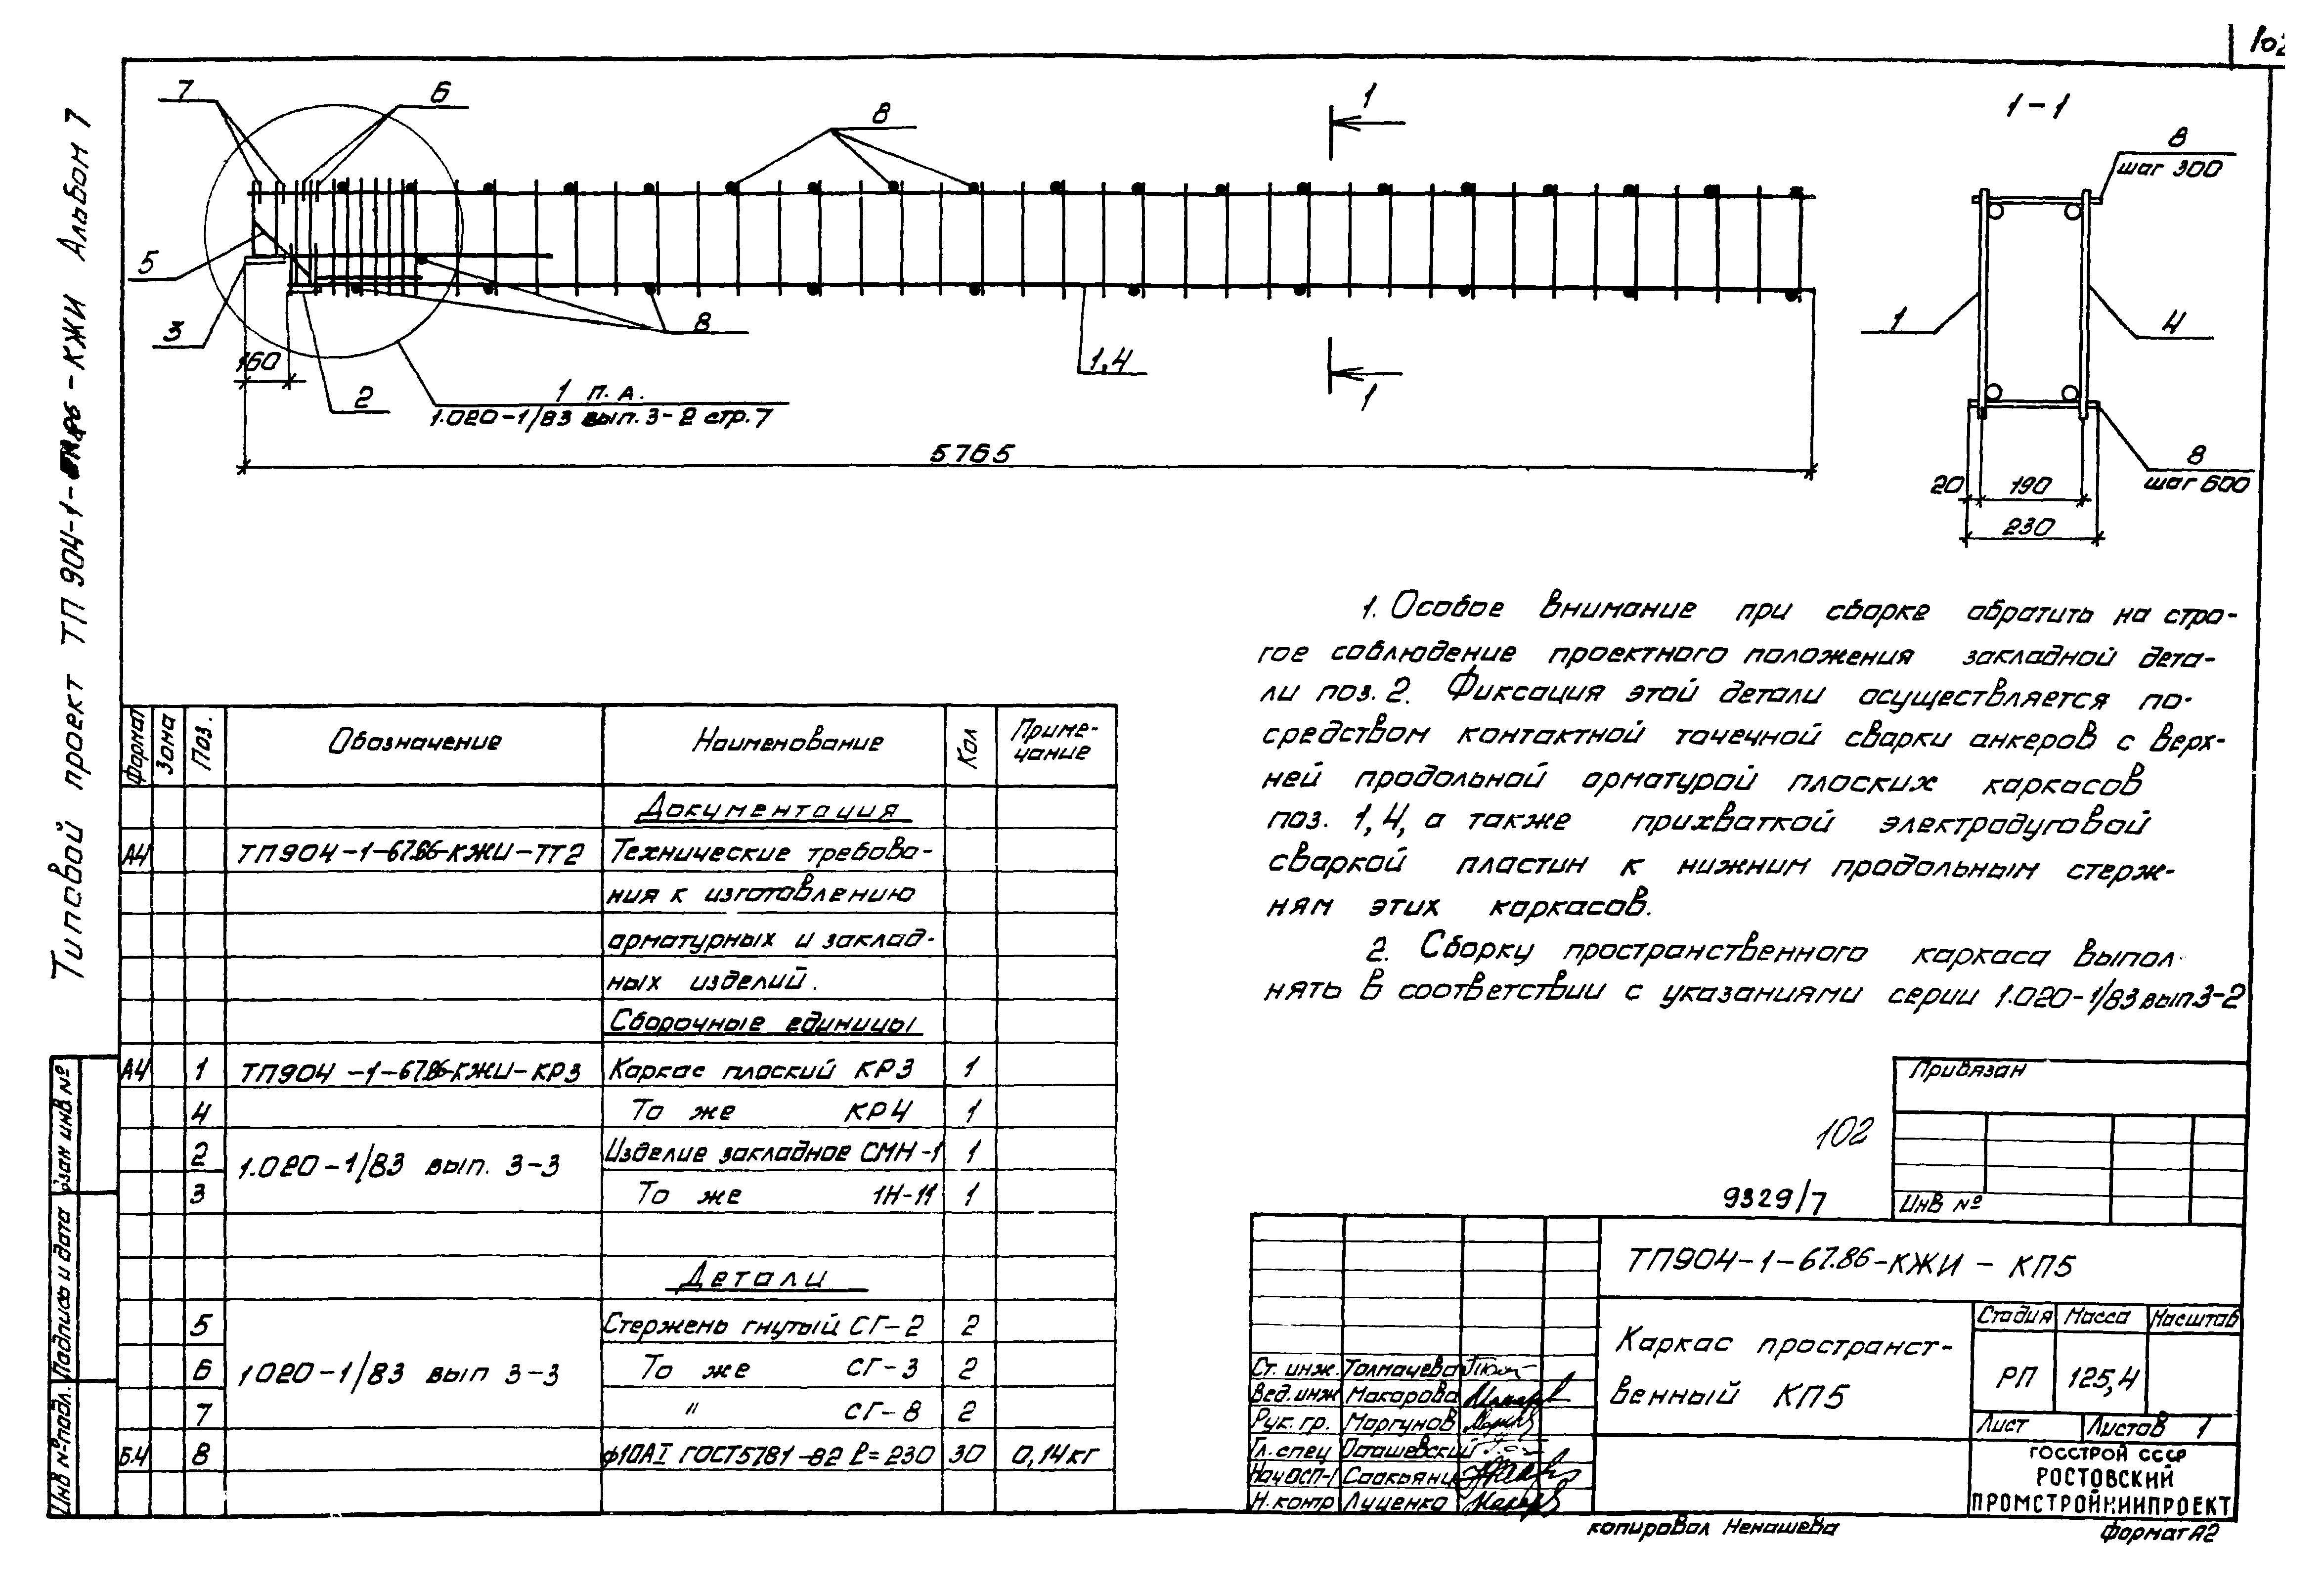 102
Типовой проект ТП 904-1- -КЖИ Альбом 7
7
6
8
1
1-1
8
шаг 300
5
3
160
2
8
1,4
1
1
4
1 п.А.
1.020-1/83 вып. 3-2 стр. 7
5765
8
шаг 600
20
190
230
1. Особое внимание при сборке обратить на стро-
гое соблюдение проектного положения закладной дета-
ли поз. 2. Фиксация этой детали осуществляется по-
средством контактной точечной сварки анкеров с верх-
ней продольной арматурой плоских каркасов
поз. 1, 4, а также прихваткой электродуговой
сваркой пластин к нижним продольным стерж-
ням этих каркасов.
2. Сборку пространственного каркаса выпол-
нять в соответствии с указаниями серии 1.020-1/83 вып 3-2
Формат Зона Поз. Обозначение Наименование Кол Приме-
чание
Документация
А4 ТП904-1-67.86-КЖИ-ТТ2 Технические требова-
ния к изготовлению
арматурных и заклад-
ных изделий.
Сборочные единицы
А4 1 ТП904-1-67.86-КЖИ-КР3 Каркас плоский КР3 1
4 То же КР4 1
2 1.020-1/83 вып. 3-3 Изделие закладное СМН-1 1
3 То же 1Н-11 1
Детали
5 Стержень гнутый СГ-2 2
6 1020-1/83 вып 3-3 То же СГ-3 2
7 " СГ-8 2
Б4 8 ф10АI ГОСТ5781-82 l=230 30 0,14кг
Взам инв №
Подпись и дата
Инв № подл.
Привязан
Инв №
102
9329/7
ТП904-1-67.86-КЖИ-КП5
Каркас пространст-
венный КП5
Стадия Масса Масштаб
РП 125,4
Лист Листов 1
ГОССТРОЙ СССР
РОСТОВСКИЙ
ПРОМСТРОЙНИИПРОЕКТ
Ст. инж. Толмачева
Вед. инж Макарова
Рук. гр. Моргунов
Гл. спец Осташевский
Нач ОСП-1 Саакьянц
Н. контр Луценко
копировал Ненашева
Формат А2